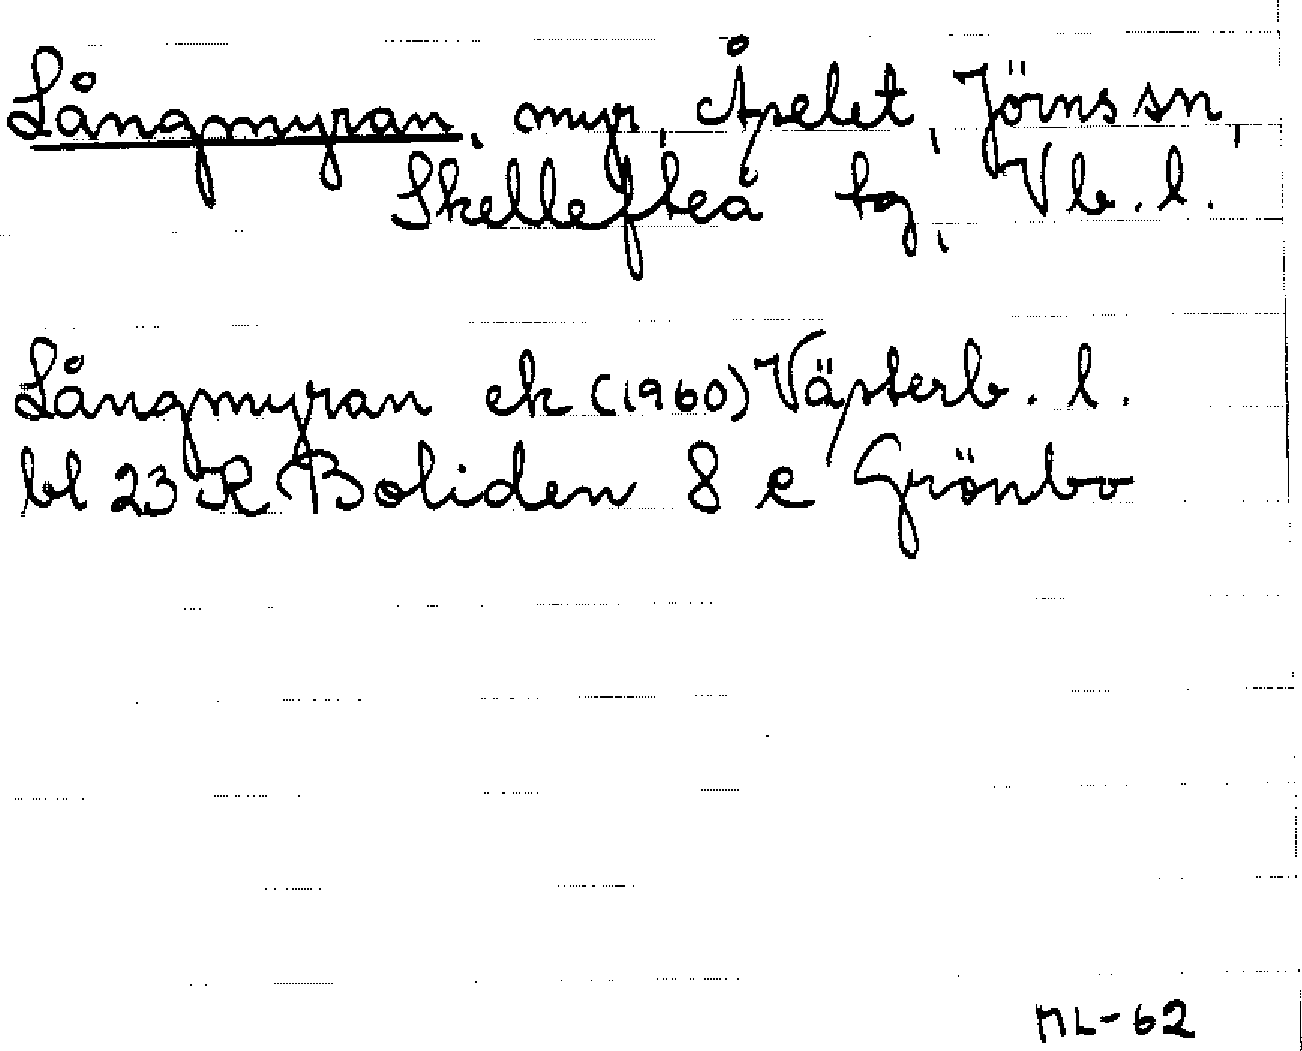 Långmyran, myr, Åselet, Jörns sn,
Skellefteå tg, Vb. l.
Långmyran ek (1960) Västerb. l.
bl 23 K Boliden 8 e Grönbo
ML-62